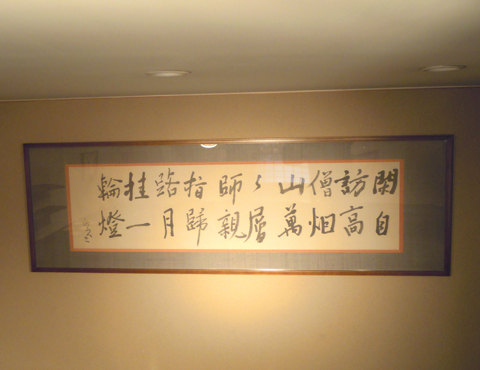 閑自
訪高
僧烟
山萬
〻層
師親
指歸
路月
挂一
輪燈